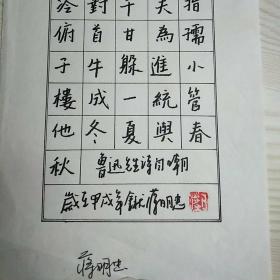 冷對千夫指
俯首甘為孺
子牛躲進小
樓成一統管
他冬夏與春
秋 魯迅先生詩自嘲
歲在甲戌年秋蔣明
蔣明